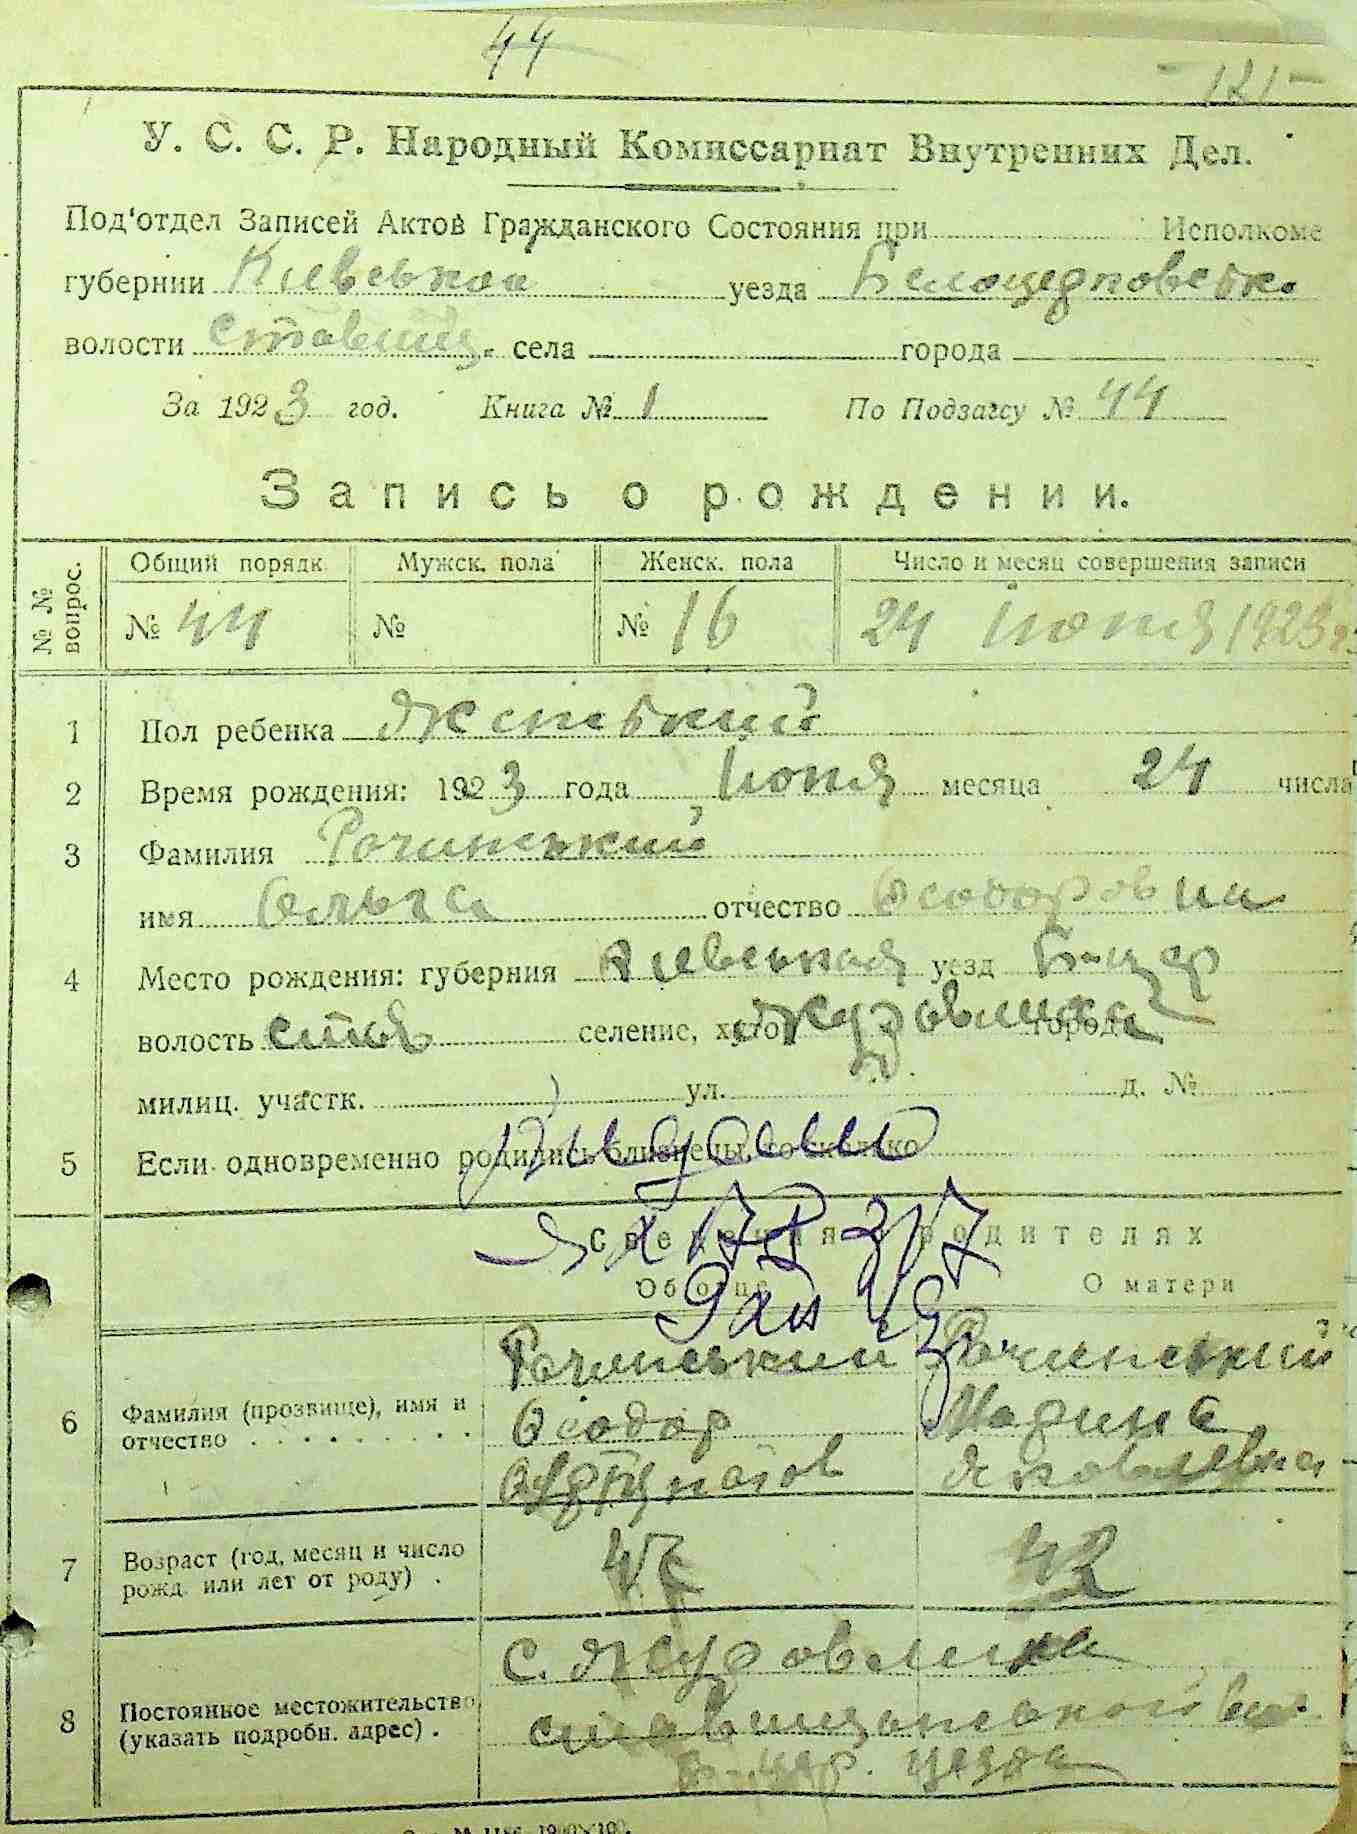 44
- 121 -
У. С. С. Р. Народный Комиссариат Внутренних Дел.
Под'отдел Записей Актов Гражданского Состояния при Исполкоме
губернии Киевськой уезда Белоцерковск.
волости Ставищ. села города
За 1923 год. Книга № 1 По Подзагсу № 44
Запись о рождении.
№ № вопрос. Общий порядк. Мужск. пола Женск. пола Число и месяц совершения записи
№ 44 № № 16 24 Июня 1923 г.
1 Пол ребенка Женський
2 Время рождения: 1923 года Июня месяца 24 числа
3 Фамилия Рочинський
имя Ольга отчество Феодоровна
4 Место рождения: губерния Киевськая уезд Б-цер
волость Став селение, хутор Журавлиха города
милиц. участк. ул. д. №
5 Если одновременно родились близнецы, то сколько
Сведения о родителях
Об отце О матери
6 Фамилия (прозвище), имя и отчество Рочинський Рочинський
Феодор Марина
Яковлевна
7 Возраст (год, месяц и число рожд. или лет от роду) 47 42
8 Постоянное местожительство (указать подробн. адрес) с. Журавлиха
Ставищанськой вол.
Б-цер. уезда